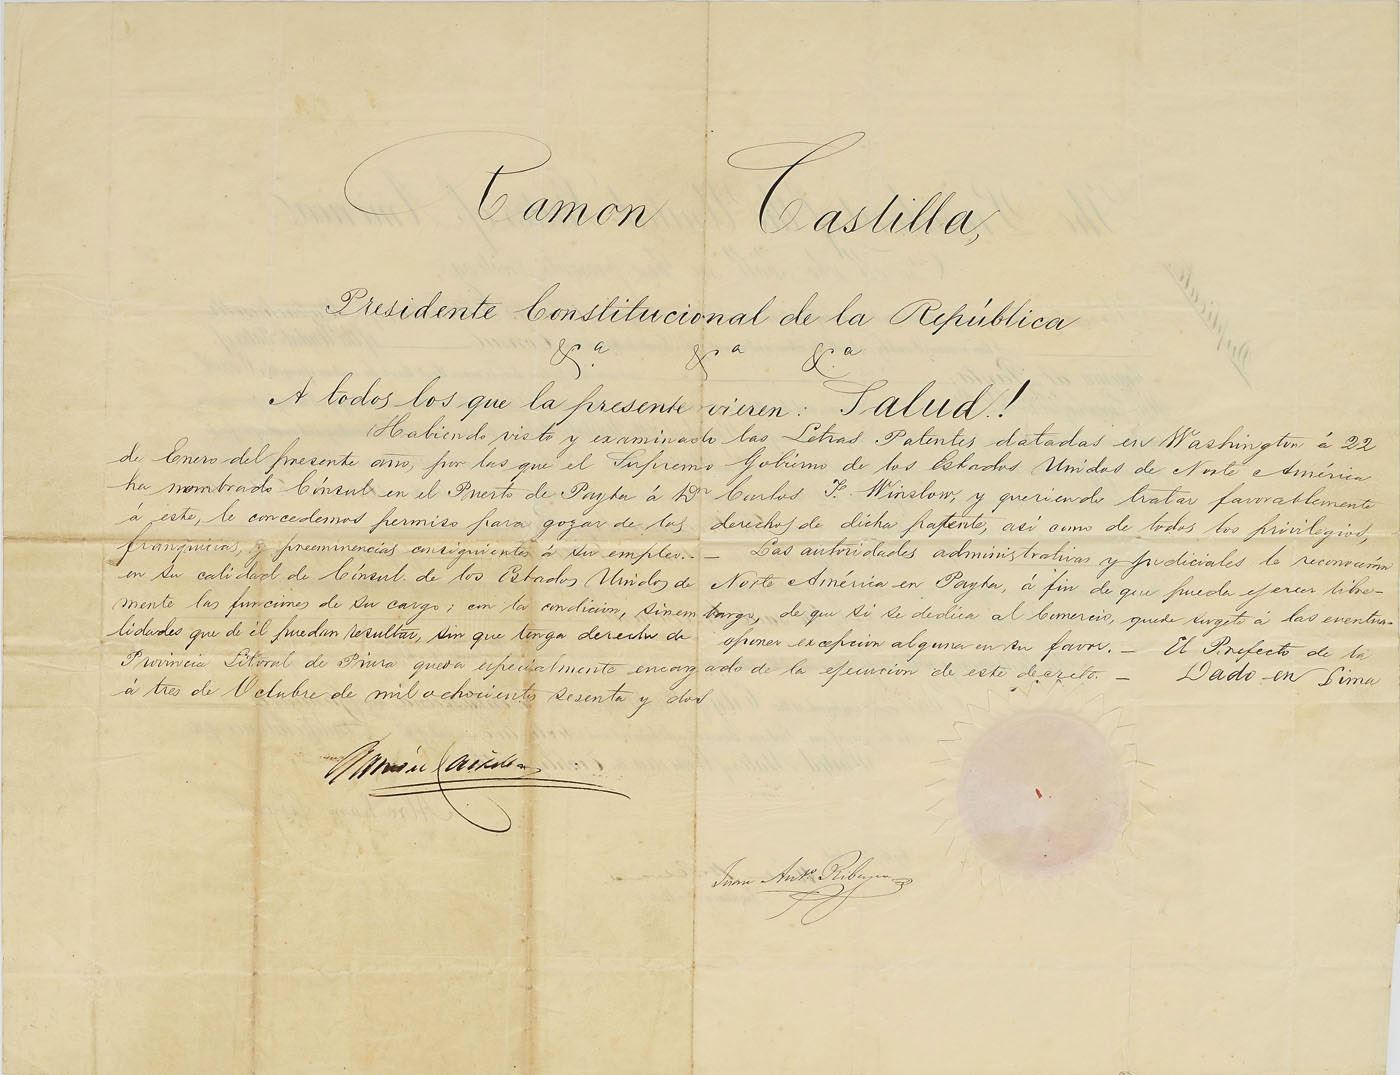 Ramon Castilla,
Presidente Constitucional de la República
&.a &a &.a
A todos los que la presente vieren: Salud.!
Habiendo visto y examinado las Letras Patentes datadas en Washington á 22
de Enero del presente año, por las que el Supremo Gobierno de los Estados Unidos de Norte América
ha nombrado Cónsul en el Puerto de Payta á Dn Carlos F. Winslow, y queriendo tratar favorablemente
á este, le concedemos permiso para gozar de los derechos de dicha patente, así como de todos los privilegios,
franquicias, y preeminencias consiguientes á su empleo.— Las autoridades administrativas y judiciales le reconocerán
en su calidad de Cónsul de los Estados Unidos de Norte América en Payta, á fin de que pueda ejercer libre-
mente las funciones de su cargo; con la condicion, sin embargo, de que si se dedica al Comercio, quede sugeto á las eventua-
lidades que de él puedan resultar, sin que tenga derecho de oponer excepcion alguna en su favor.— El Prefecto de la
Provincia Litoral de Piura queda especialmente encargado de la ejecucion de este decreto.— Dado en Lima
á tres de Octubre de mil ochocientos sesenta y dos
Ramón Castilla
Juan Anto. Ribeyro